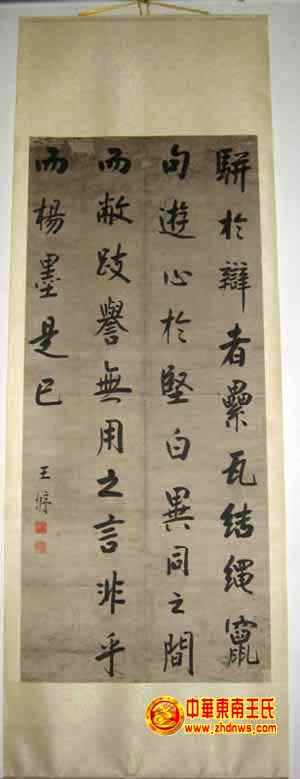 駢於辯者纍瓦結繩竄
句遊心於堅白異同之間
而敝跂譽無用之言非乎
而楊墨是已
王
中華東南王氏
www.zhdnws.com